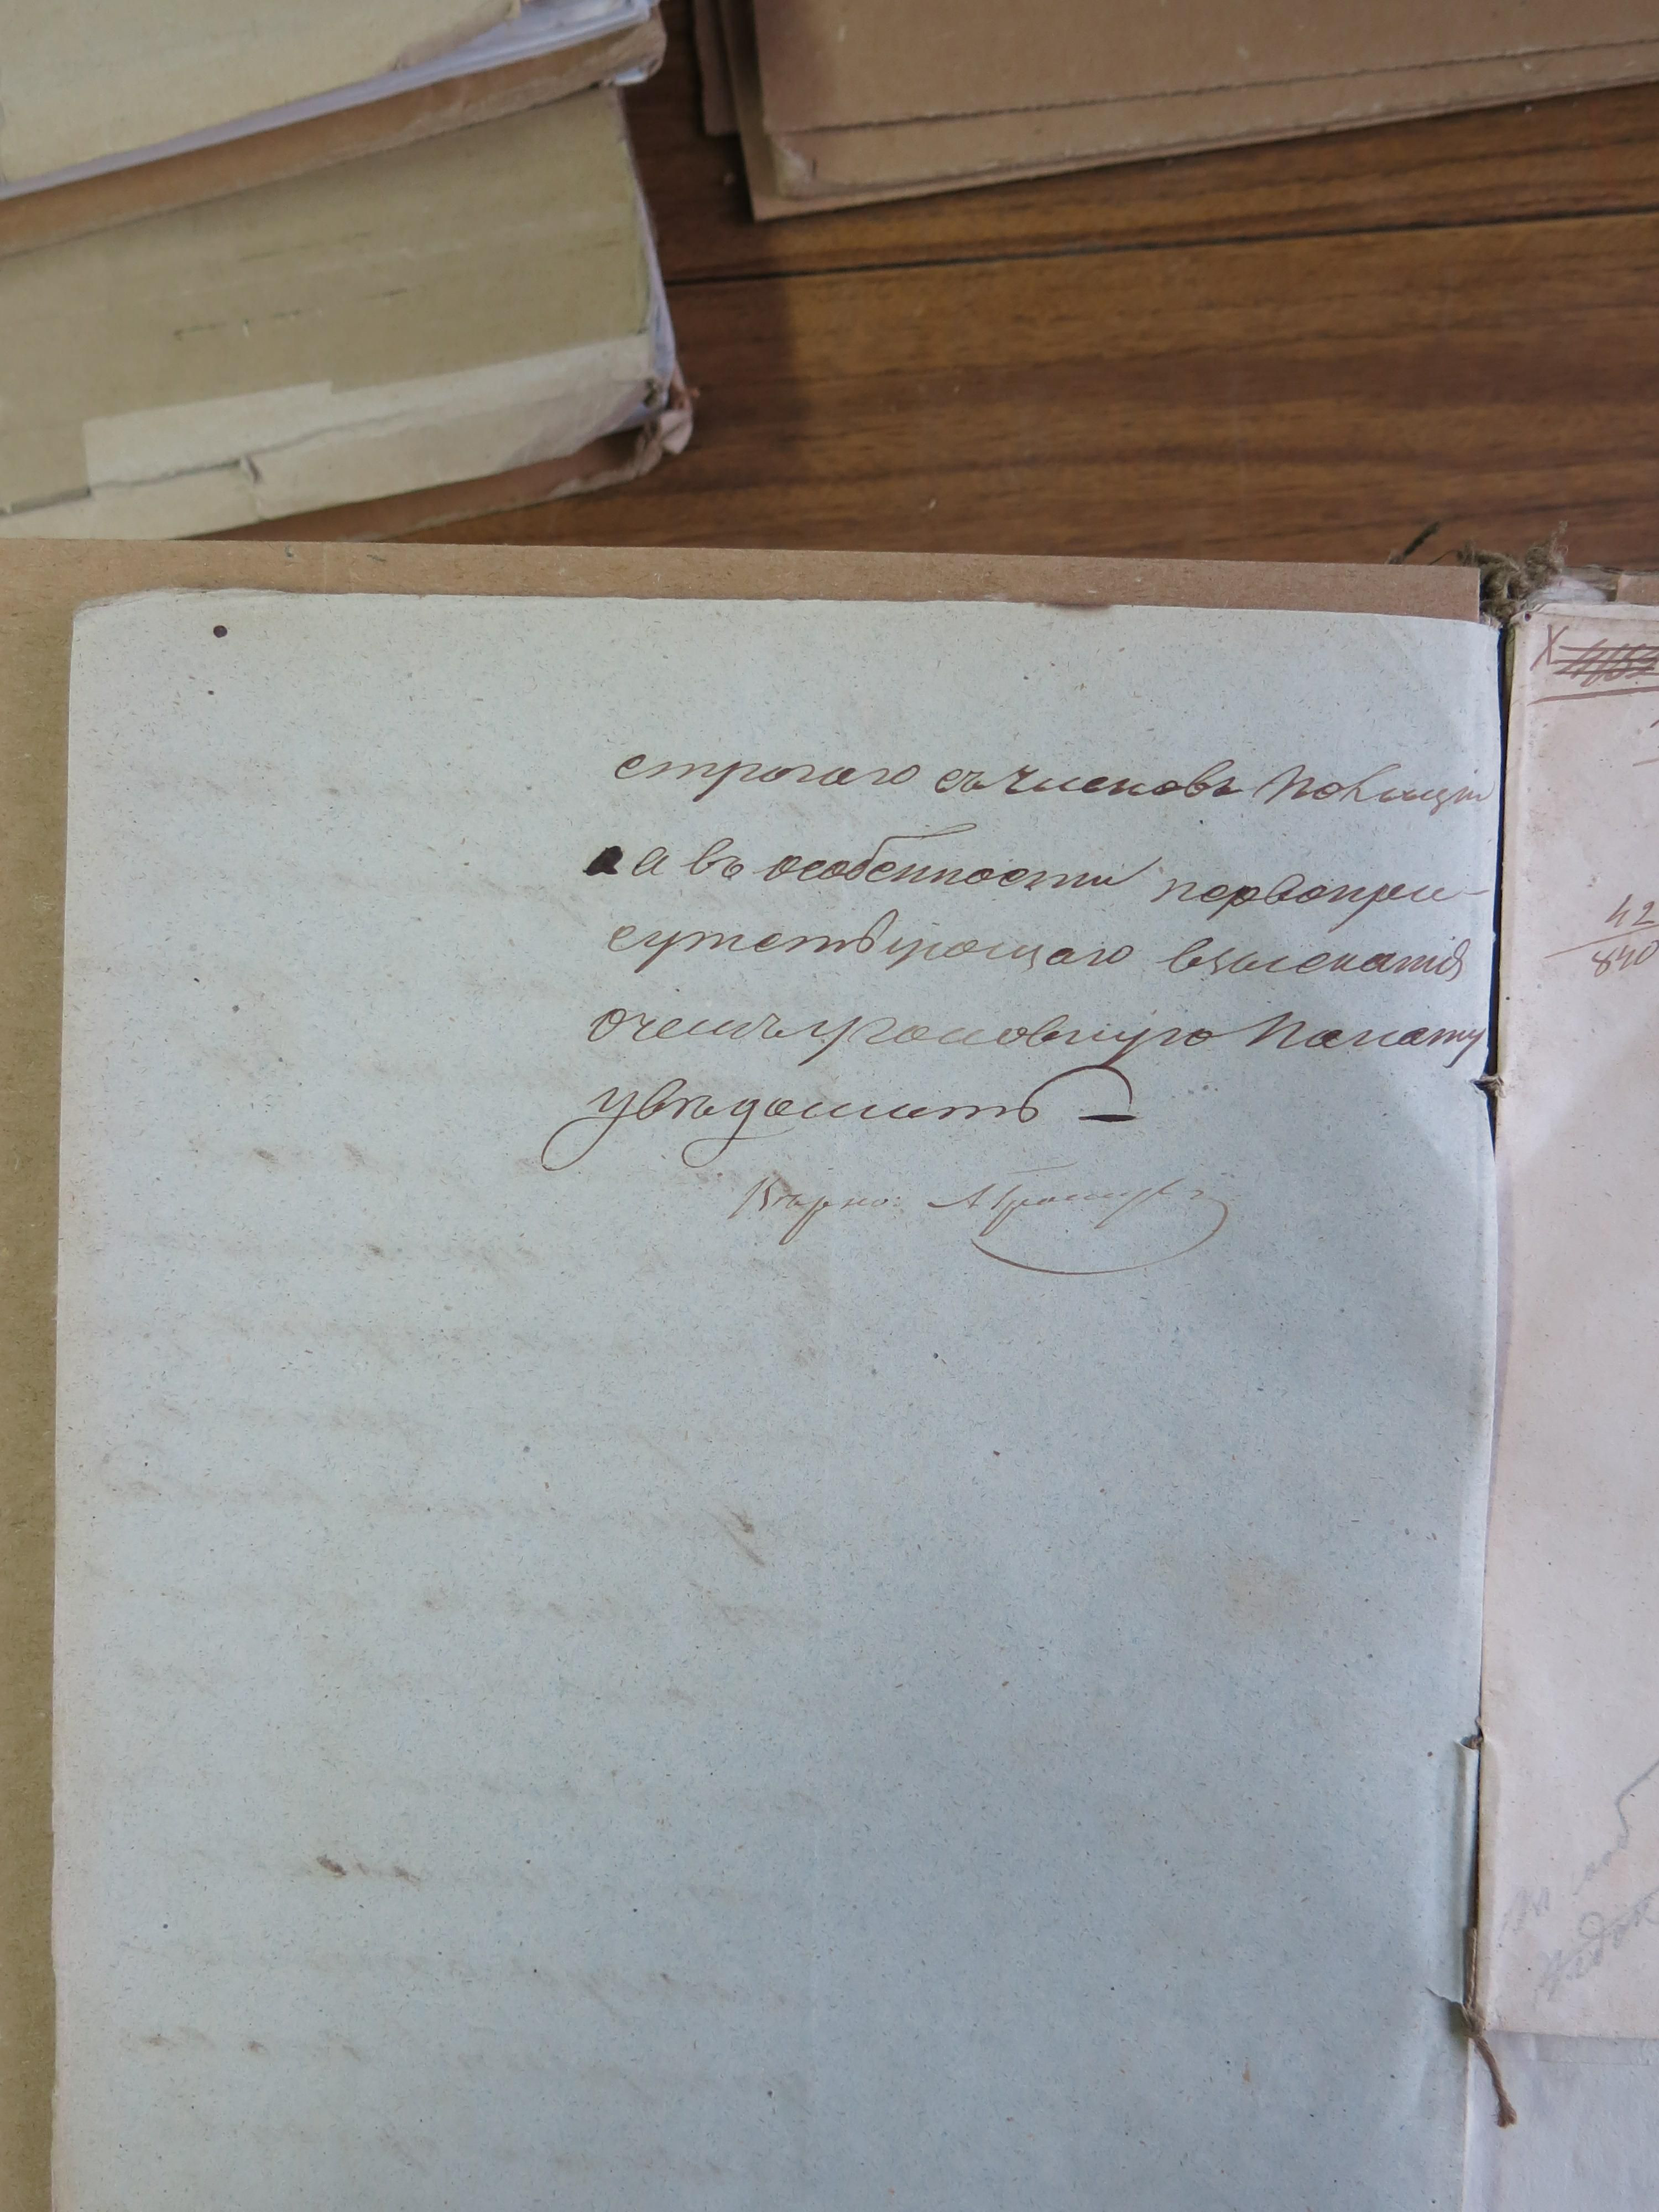 строгаго съ членовъ Полиціи
а въ особенности первопри-
сутствующаго взысканія
о чемъ уголовную Палату
увѣдомить —
Вѣрно:
42
840